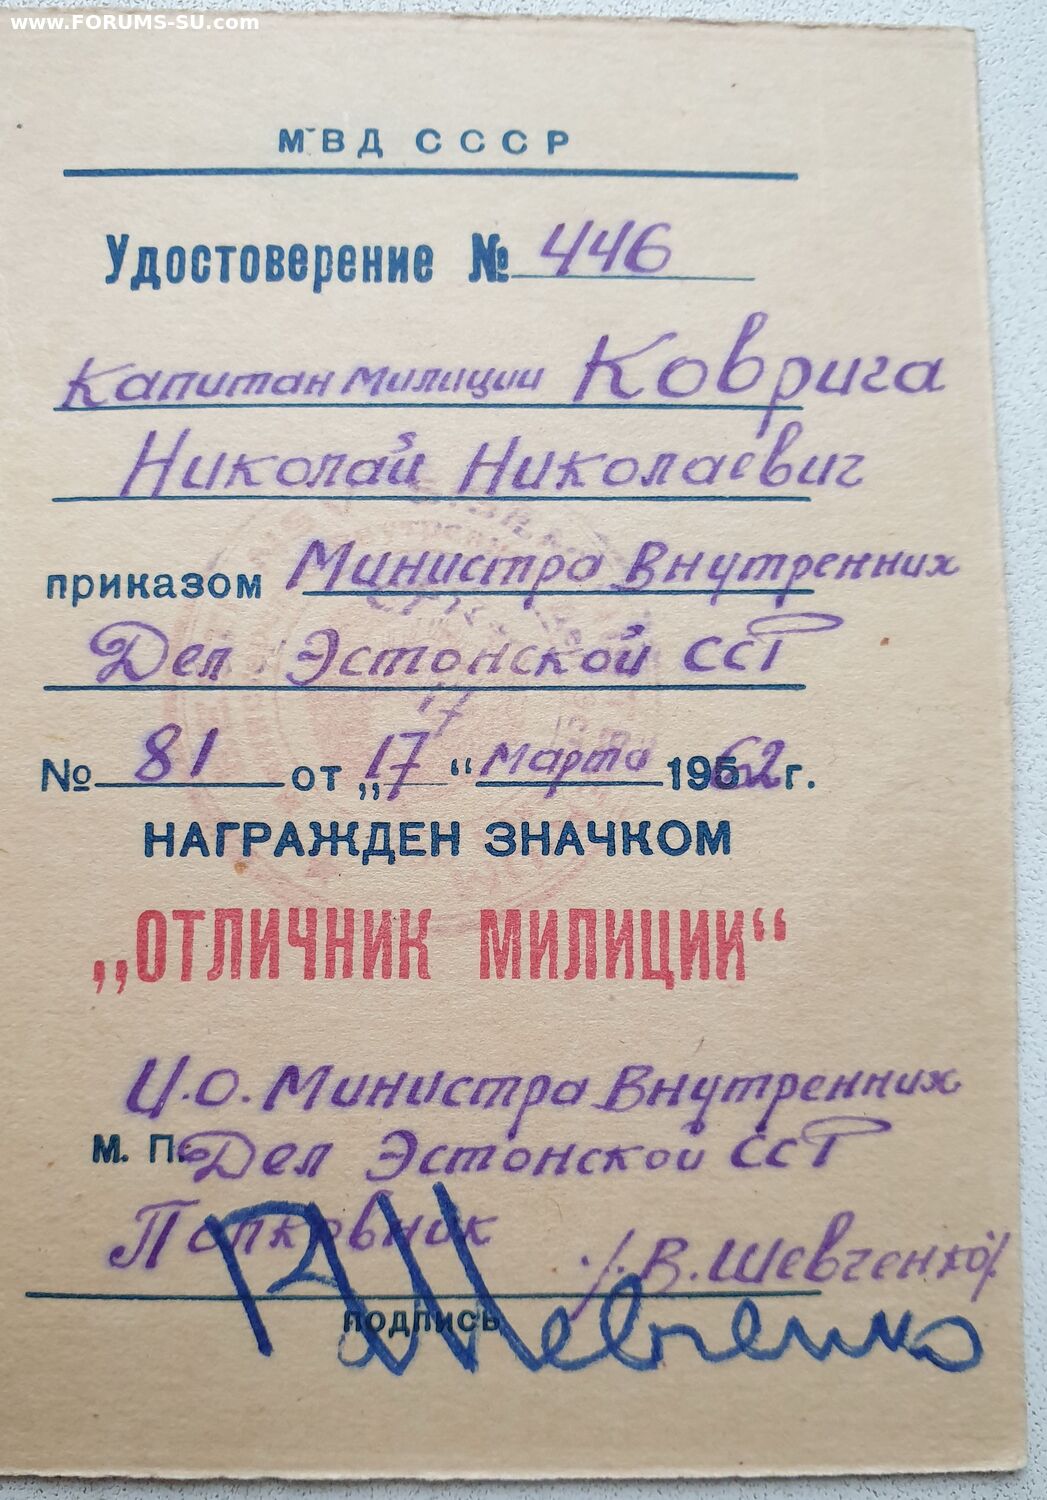 www.FORUMS-SU.com
МВД СССР
Удостоверение № 446
Капитан милиции Коврига
Николай Николаевич
приказом Министра Внутренних
Дел Эстонской ССР
17
№ 81 от „17“ марта 1962 г.
НАГРАЖДЕН ЗНАЧКОМ
„ОТЛИЧНИК МИЛИЦИИ“
И.О. Министра Внутренних
М. П. Дел Эстонской ССР
Полковник /В. Шевченко/
подпись
В Шевченко